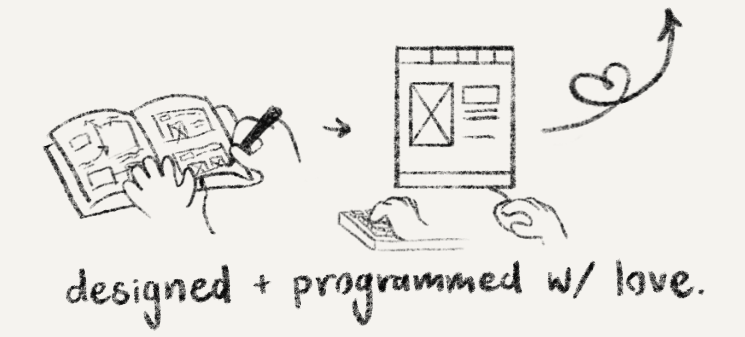 designed + programmed w/ love.